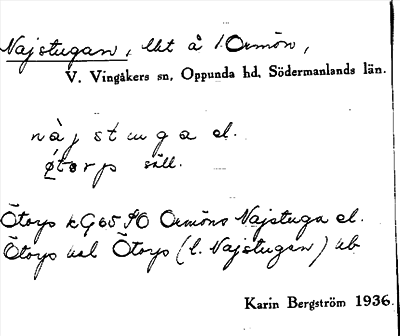 Najstugan, lht å 1 Ormön,
V. Vingåkers sn, Oppunda hd, Södermanlands län.
nàjstuga el.
ø̀torp säll.
Ötorp kG65 SO Ormöns Najstuga el.
Ötorp Ötorp (l. Najstugan)
Karin Bergström 1936.